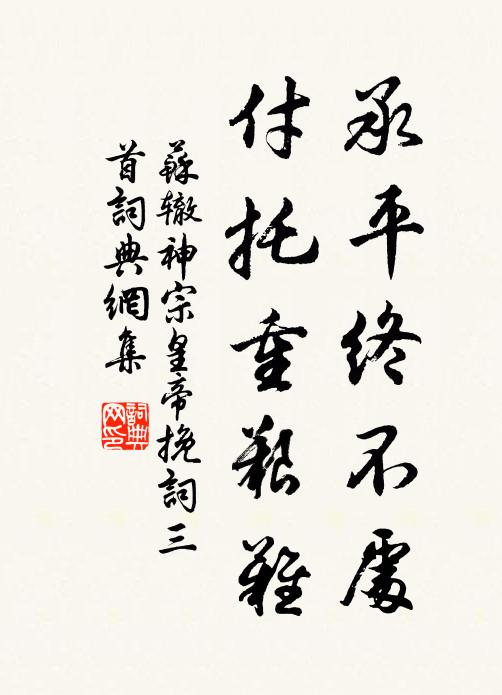 承平終不處
付托重艱難
蘇轍神宗皇帝挽詞三
首詞典網集
詞典
网印